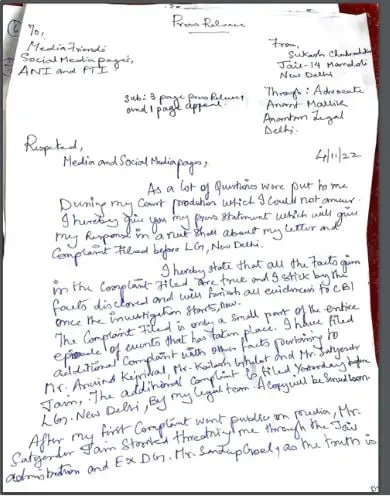 Press Release
To,
Media Friends
Social Media pages,
ANI and PTI.
From,
Sukash Chandrashekar
Jail-14 Mandoli
New Delhi
Through: Advocate
Anant Mallik
Anantam Legal
Delhi.
Sub: 3 page press Release
and 1 page appeal.
Respected,
4/11/22
Media and Social Media pages,
As a lot of questions were put to me
During my Court production which I could not answer.
I hereby give you my press statement which will give
my Response in a nut shell about my letter and
Complaint Filed before LG, New Delhi.
I hereby state that all the facts given
in the Complaint Filed are true and I stick by the
facts disclosed and will furnish all evidences to CBI
once the investigation starts, now.
The Complaint Filed is only a small part of the entire
episode of events that has taken place. I have filed
additional Complaint with other facts pertaining to
Mr. Arvind Kejriwal, Mr. Kailash Gehlot and Mr. Satyender
Jain, The additional Complaint is Filed Yesterday before
LG. New Delhi, By my legal team. A copy will be shared soon
After my First Complaint went public on media, Mr.
Satyender Jain Started threatning me through the Jail
administration and Ex DG. Mr. Sandeep Goel, as the truth is